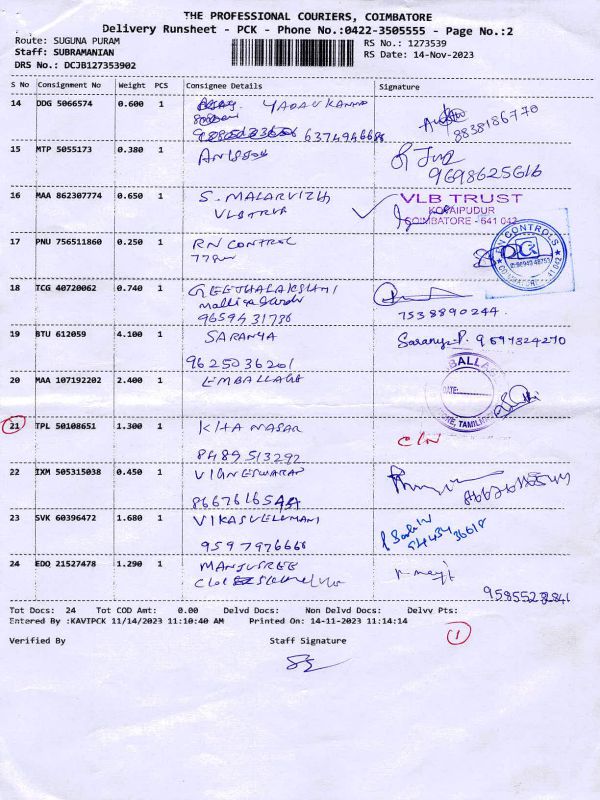 THE PROFESSIONAL COURIERS, COIMBATORE
Delivery Runsheet - PCK - Phone No.:0422-3505555 - Page No.:2
Route: SUGUNA PURAM
RS No.: 1273539
Staff: SUBRAMANIAN
RS Date: 14-Nov-2023
DRS No.: DCJB127353902
S No Consignment No Weight PCS Consignee Details Signature
14 DDG 5066574 0.600 1
6374946686
8838186770
15 MTP 5055173 0.380 1
9698625616
16 MAA 862307774 0.650 1 S. MALARVIZH
VLB TRUST
KOVAIPUDUR
COIMBATORE - 641 042
17 PNU 756511860 0.250 1 RN CONTROL
18 TCG 40720062 0.740 1 GEETHALAKSHMI
9659431736
7538890244.
19 BTU 612059 4.100 1 SARANYA
Saranya P. 9697324270
9625036201
20 MAA 107192202 2.400 1 EMBALLAGE
DATE:
21 TPL 50108651 1.300 1 KHA NASAR
C/N
8489513292
22 IXM 505315038 0.450 1 VIGNESWARAN
23 SVK 60396472 1.680 1 VIKASVELUMANI
9597976666
24 EDO 21527478 1.290 1 MANJUSREE
Tot Docs: 24 Tot COD Amt: 0.00 Delvd Docs: Non Delvd Docs: Delvv Pts:
Entered By :KAVIPCK 11/14/2023 11:10:40 AM Printed On: 14-11-2023 11:14:14
Verified By Staff Signature
1